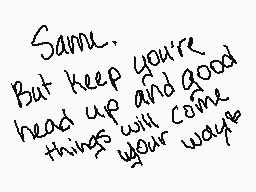 Same.
But keep you're
head up and good
things will come
your way♥